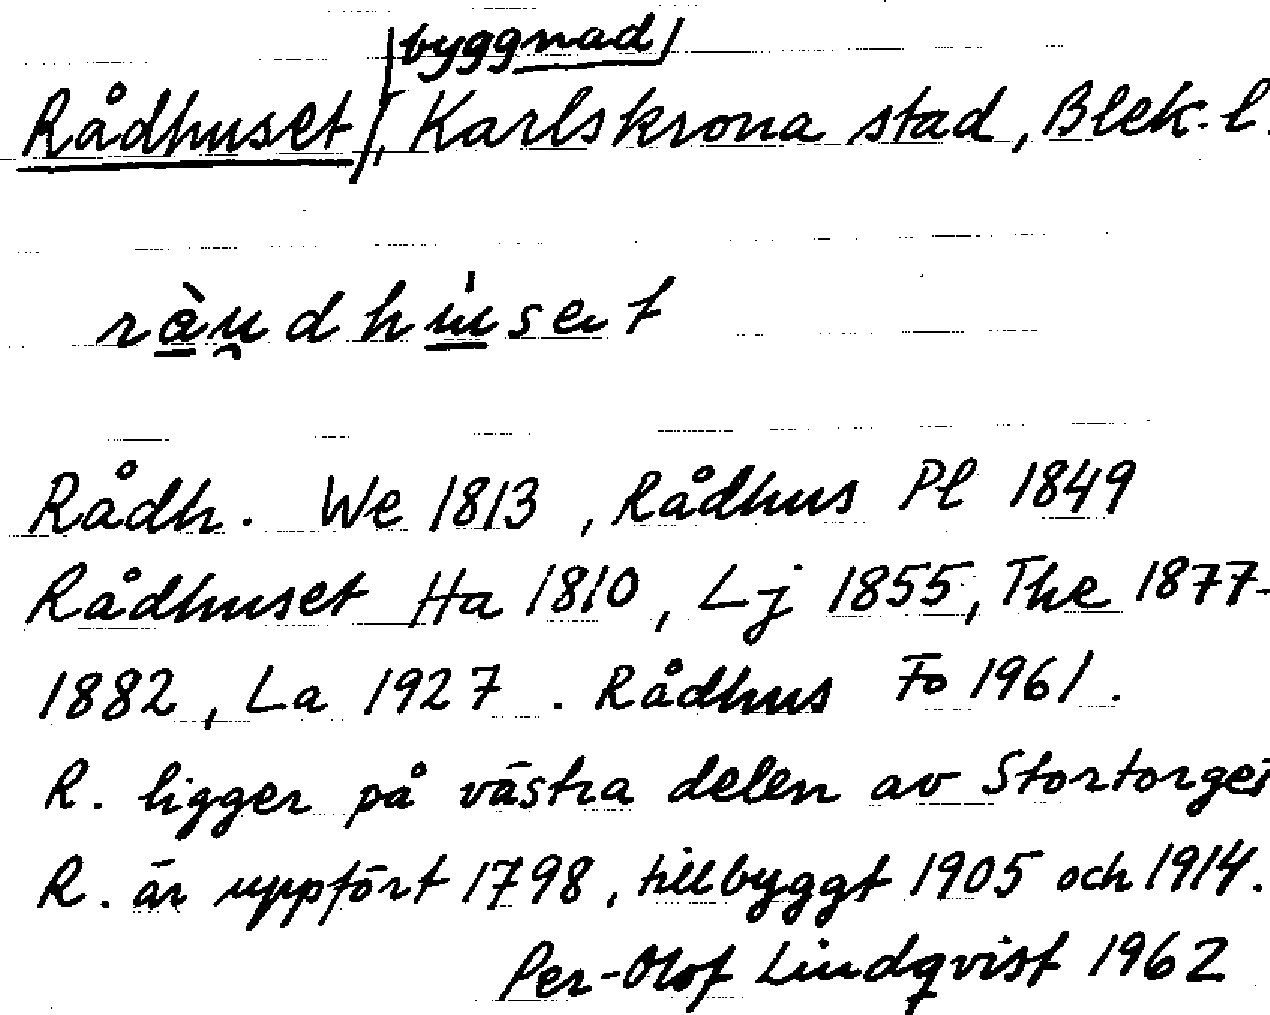 byggnad
Rådhuset, Karlskrona stad, Blek. l.
ràu̯dhu̍set
Rådh. We 1813, Rådhus Pl 1849
Rådhuset Ha 1810, Lj 1855, The 1877-
1882, La 1927. Rådhus Fo 1961.
R. ligger på västra delen av Stortorget
R. är uppfört 1798, tillbyggt 1905 och 1914.
Per-Olof Lindqvist 1962